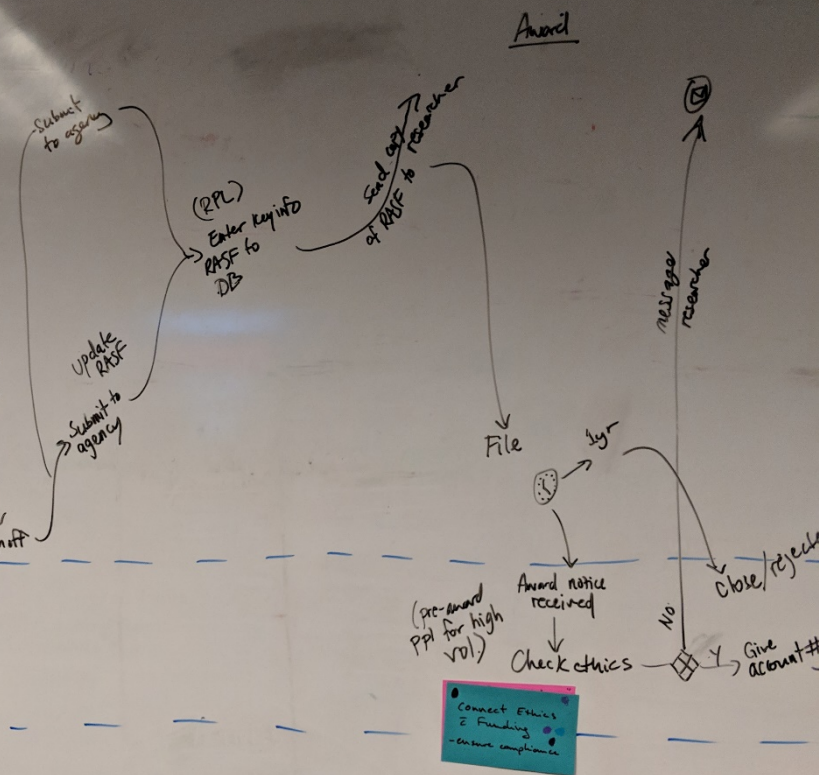 Award
Submit
to agency
(RPL)
Enter key info
RASF to
DB
Send copy
of RASF to researcher
message
researcher
Update
RASF
Submit to
agency
File
1yr
Award notice
received
(pre-award
ppl for high
vol.)
Check ethics
No
Y
Give
account #
Close/rejecte
Connect Ethics
c̄ Funding
- ensure compliance